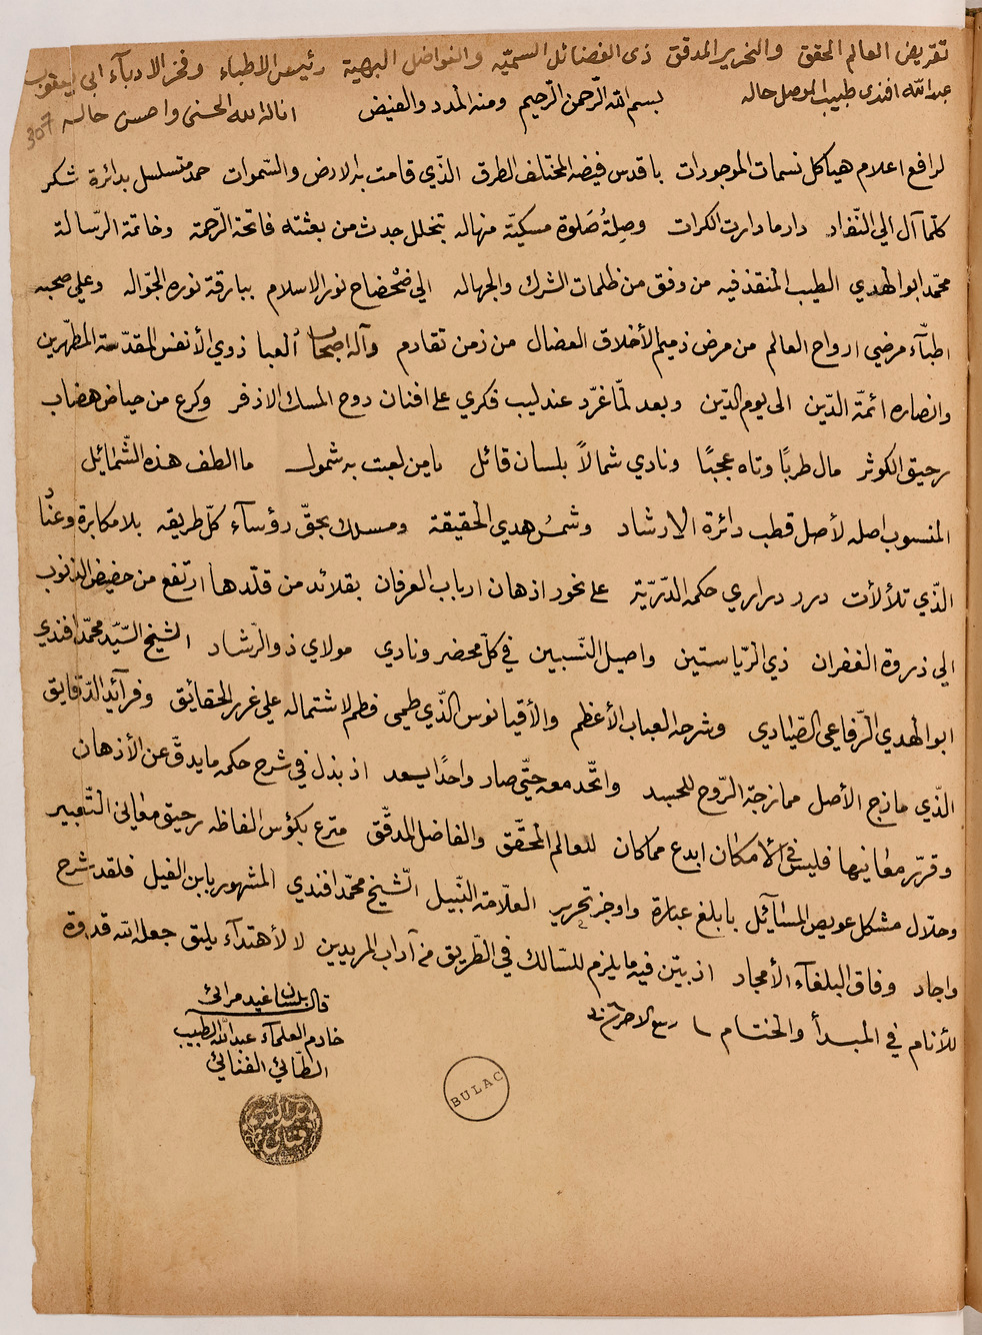 تقريض العالم المحقق والنحرير المدقق ذى الفضائل السميّه والفواضل البهية رئيس الاطباء وفخر الادبآء ابى يعقوب
عبد الله افندى طبيب الموصل حاله
بسم الله الرّحمن الرّحيم ومنه المدد والفيض
انالنا الله الحسنى واحسن حاله
307
لرافع اعلام هياكل نسمات الموجودات باقدس فيضه المختلف الطرق الذّي قامت به الارض والسّموات حمد متسلسل بدائرة شكر
كلّما آل الي النّفاد دار مادارت الكرات وصِلةُ صَلوة مسكيّة منهاله تتخلل جدث من بعثته فاتحة الرّحمة وخاتمة الرّسالة
محمّد ابو الهدي الطيب المنقذ فيه من وفق من ظلمات الشرك والجهاله الي ضحْضاح نور الاسلام ببارقة نوره الجوّاله وعلي صحبه
اطبّآء مرضي ارواح العالم من مرض ذميم الأخلاق العضال من زمن تقادم وآله اصحاب العبا ذوي الأنفس المقدّسة المطهّرين
وانصاره ائمّة الدّين الى يوم الدّين وبعد لمّا غرّد عندليب فكري على افنان دوح المسك الاذفر وكرع من حياض هضاب
رحيق الكوثر مال طربًا وتاه عجبًا ونادي شمالاً بلسان قائل يامن لعبت به شمول ما الطف هذه الشّمائيل
المنسوب اصله لأصل قطب دائرة الارشاد وشمسُ هدي الحقيقة ومسلك بحقّ رؤسآء كلّ طريقه بلا مكابرة وعنُا
الذّي تلألأت درر دراري حكمه الدّرّيّة على نحور اذهان ارباب العرفان بقلائد من قلّدها ارتفع من حضيض الذنوب
الي ذروة الغفران ذي الرّياستين واصيل النّسبين في كلّ محضر ونادي مولاي ذو الرّشاد الشيخ السّيّد محمّد افندي
ابو الهدي الرّفاعي الصّيّادي وشرحه العباب الأعظم والأقيانوس الذّي طمي فطم لاشتماله علي غرر الحقائق وفرآئد الدّقايق
الذّي مازج الأصل ممازجة الرّوح للجسد واتّحد معه حتّي صار واحدًا يسعد اذ بذل في شرح حكمه مايدقّ عن الأذهان
وقرّر معانيها فليس في الأمكان ابدع مماكان للعالم المحقّق والفاضل المدقّق مترع بكؤس الفاظه رحيق معاني التّعبير
وحلال مشكل عويص المسآئل بابلغ عبارة واوجز تحرير العلّامة النّبيل الشّيخ محمّد افندي المشهور بابن الفيل فلقد شرح
واجاد وفاق البلغآء الأمجاد اذ بيّن فيه مايلزم للسّالك في الطّريق من آداب المريدين لالأهتدآء يليق جعله الله قدوة
للأنام في المبدأ والختام ربيع الاخر
قال بلسان
خادم العلمآء عبد الله الطبيب
الطّائي القنائي
BULAC